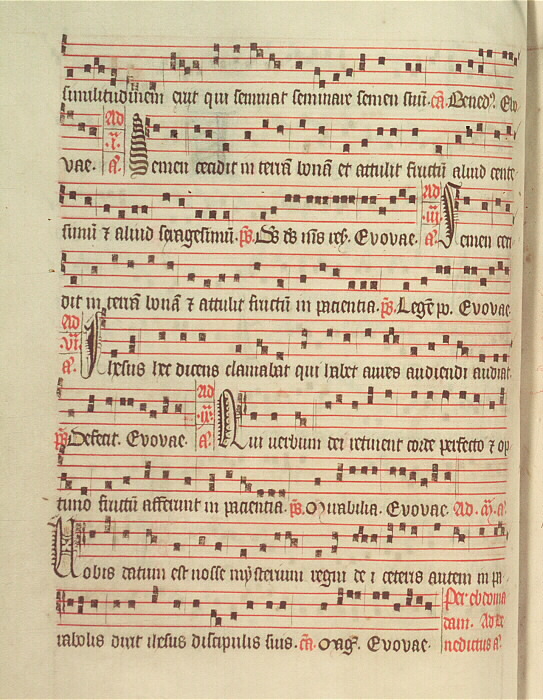 similitudinem erit qui seminat seminare semen suū. cā. Bened⁹. Evo
vae. Ad .i. a. Semen cecidit in terrā bonā et attulit fructū aliud cente
simū ⁊ aliud sexagesimū. ps. Evovae. Ad .iii. a. Semen ceci
dit in terrā bonā ⁊ attulit fructū in paciencia. ps. Legē po. Evovae.
Ad .vi. a. Ihesus hec dicens clamabat qui habet aures audiendi audiat.
ps. Defecit. Evovae. Ad .ix. a. Qui verbum dei retinent corde perfecto ⁊ op
timo fructū afferunt in paciencia. ps. Mirabilia. Evovae. Ad. a.
Vobis datum est nosse mysterium regni dei ceteris autem in pa
rabolis dixit ihesus discipulis suis. cā. Mag. Evovae.
Per ebdoma
dam. Ad be
nedictus a.